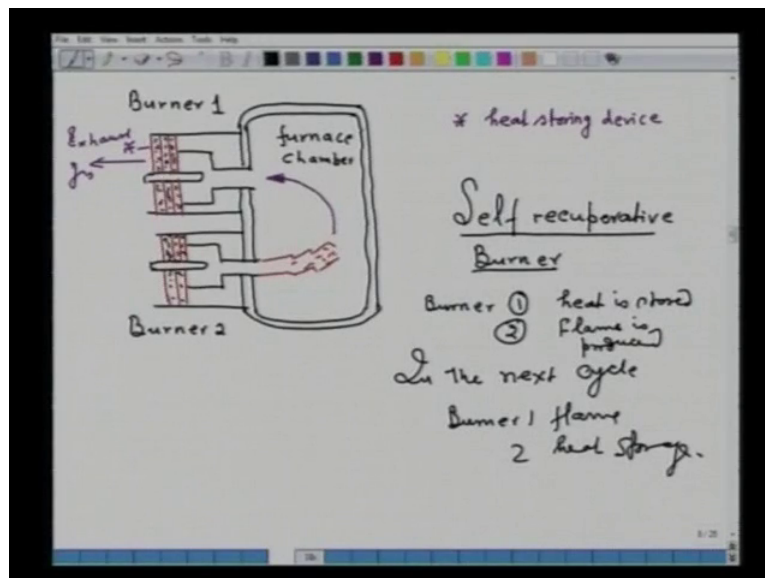 File Edit View Insert Actions Tools Help
Burner 1
Exhaust
furnace
chamber
* heat storing device
Self recuporative
Burner
Burner 1 heat is stored
2 Flame is
produced
Burner 2
In the next cycle
Burner 1 flame
2 heat storage.